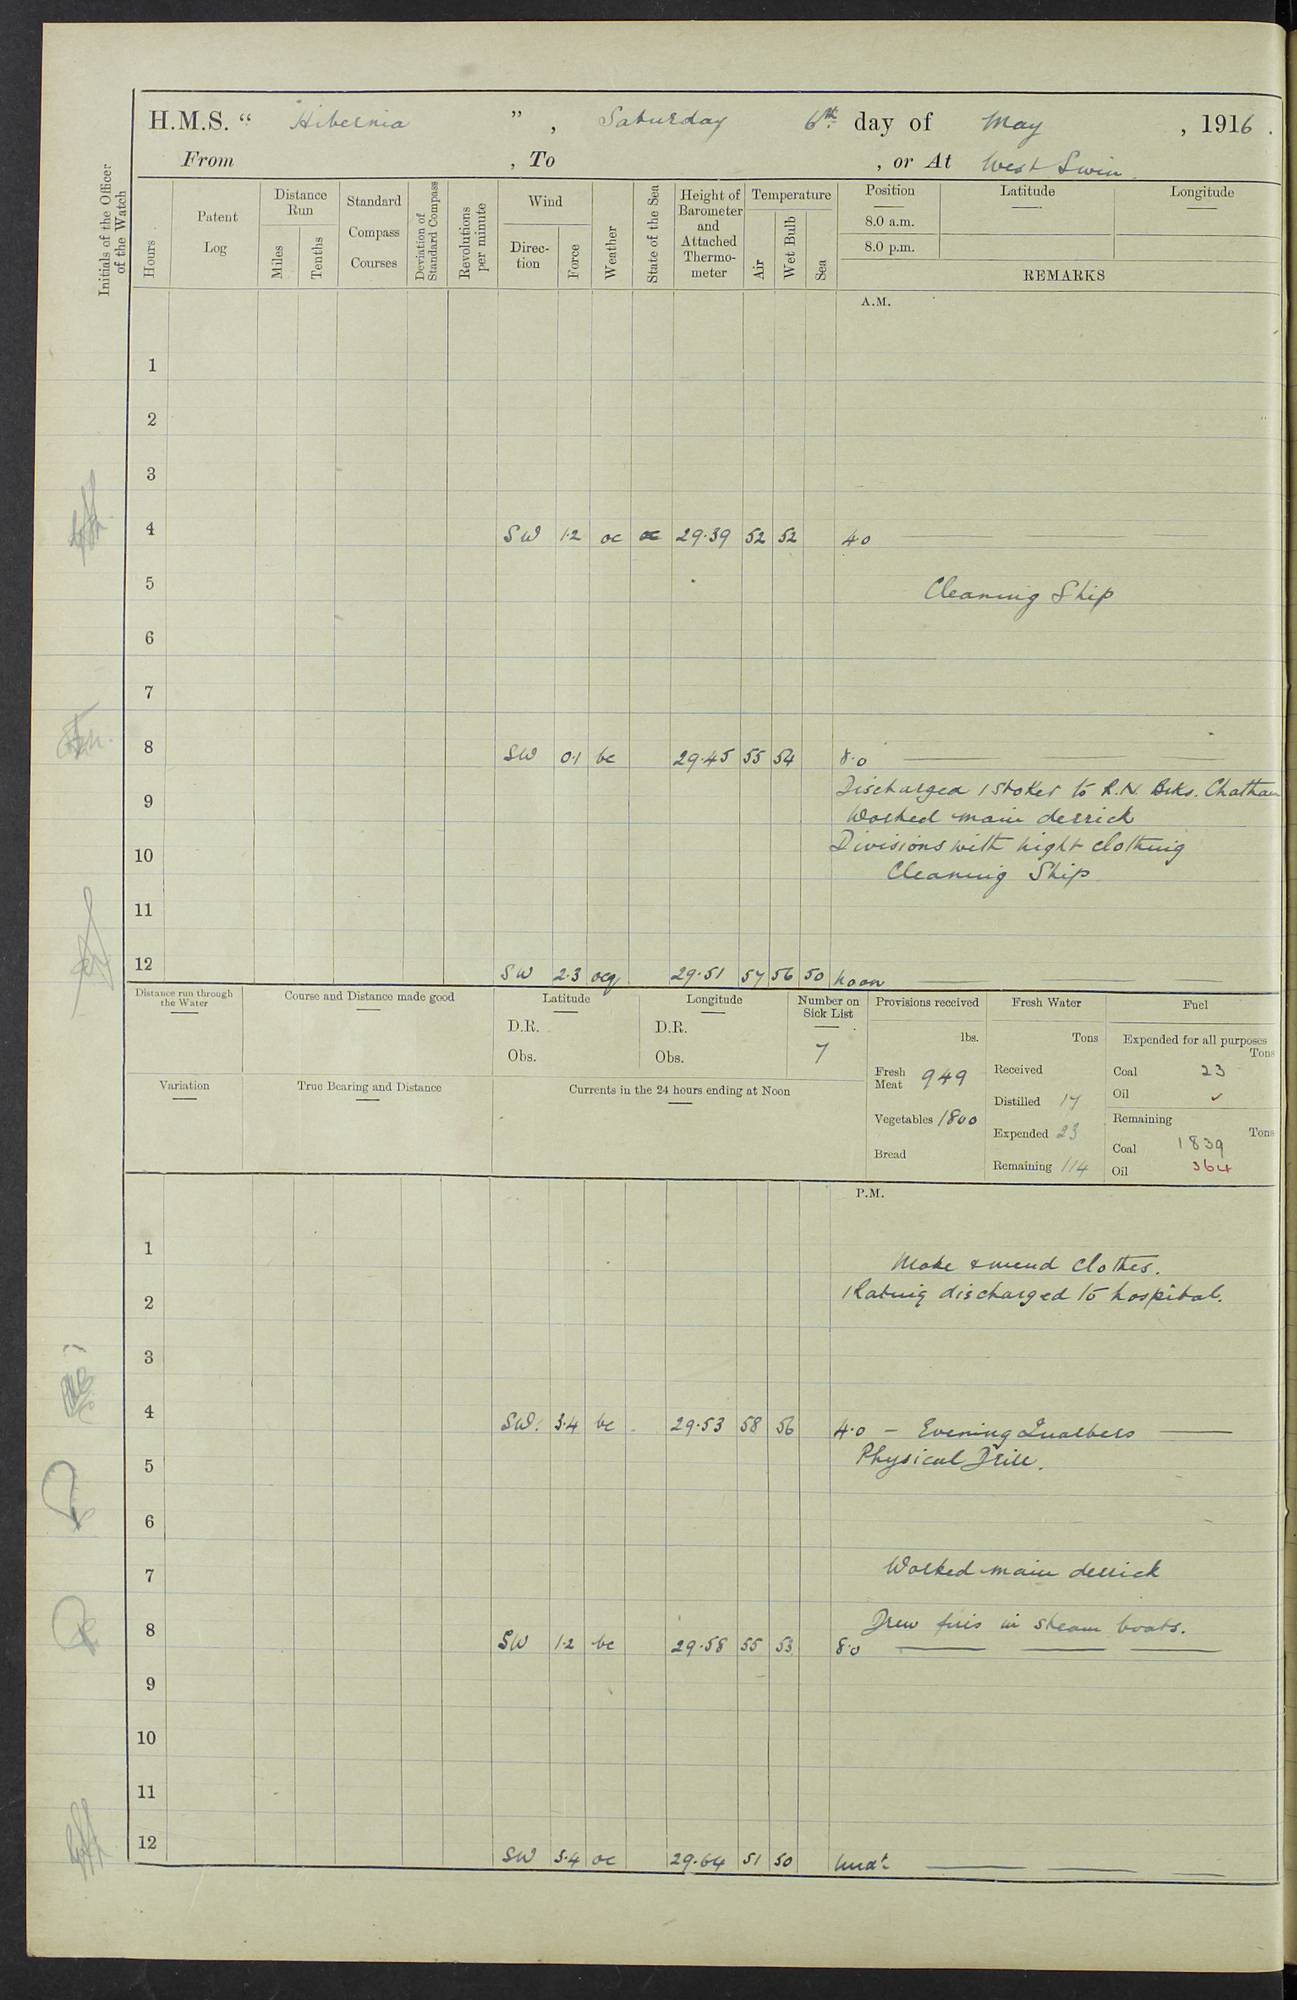 H.M.S. “ Hibernia ” , Saturday 6th day of May , 1916 .
From , To , or At West Swin
Initials of the Officer of the Watch
Hours
Patent Log
Distance Run
Miles
Tenths
Standard Compass Courses
Deviation of Standard Compass
Revolutions per minute
Wind
Direc-tion
Force
Weather
State of the Sea
Height of Barometer and Attached Thermo-meter
Temperature
Air
Wet Bulb
Sea
Position
Latitude
Longitude
8.0 a.m.
8.0 p.m.
REMARKS
A.M.
1
2
3
4 SW 1.2 oc oc 29.39 52 52 4.0
5 Cleaning Ship
6
7
8 SW 0.1 bc 29.45 55 54 8.0
Discharged 1 Stoker to R.N. Bks. Chatham
9 Worked main derrick
10 Divisions with night clothing
Cleaning Ship
11
12 SW 2.3 ocq 29.51 57 56 50 Noon
Distance run through the Water
Course and Distance made good
Latitude
Longitude
Number on Sick List
Provisions received
Fresh Water
Fuel
D.R. D.R.
Obs. Obs. 7
lbs. Tons Expended for all purposes
Tons
Fresh Meat 949 Received Coal 23
Distilled 17 Oil ✓
Variation
True Bearing and Distance
Currents in the 24 hours ending at Noon
Vegetables 1800 Expended 23 Remaining
Tons
Coal 1839
Bread Remaining 114 Oil 364
P.M.
1 Make & mend clothes.
2 1 Rating discharged to hospital.
3
4 SW. 3.4 bc 29.53 58 56 4.0 – Evening Quarters
5 Physical Drill.
6
7 Worked main derrick
8 Drew fires in steam boats.
SW 1.2 bc 29.58 55 53 8.0
9
10
11
12 SW 3.4 oc 29.64 51 50 Midt